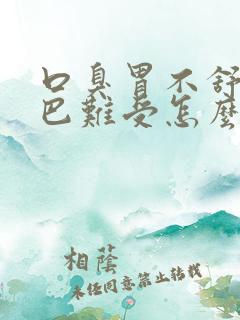 口臭胃不舒
巴難受怎麼
相蔭
未经同意禁止转载